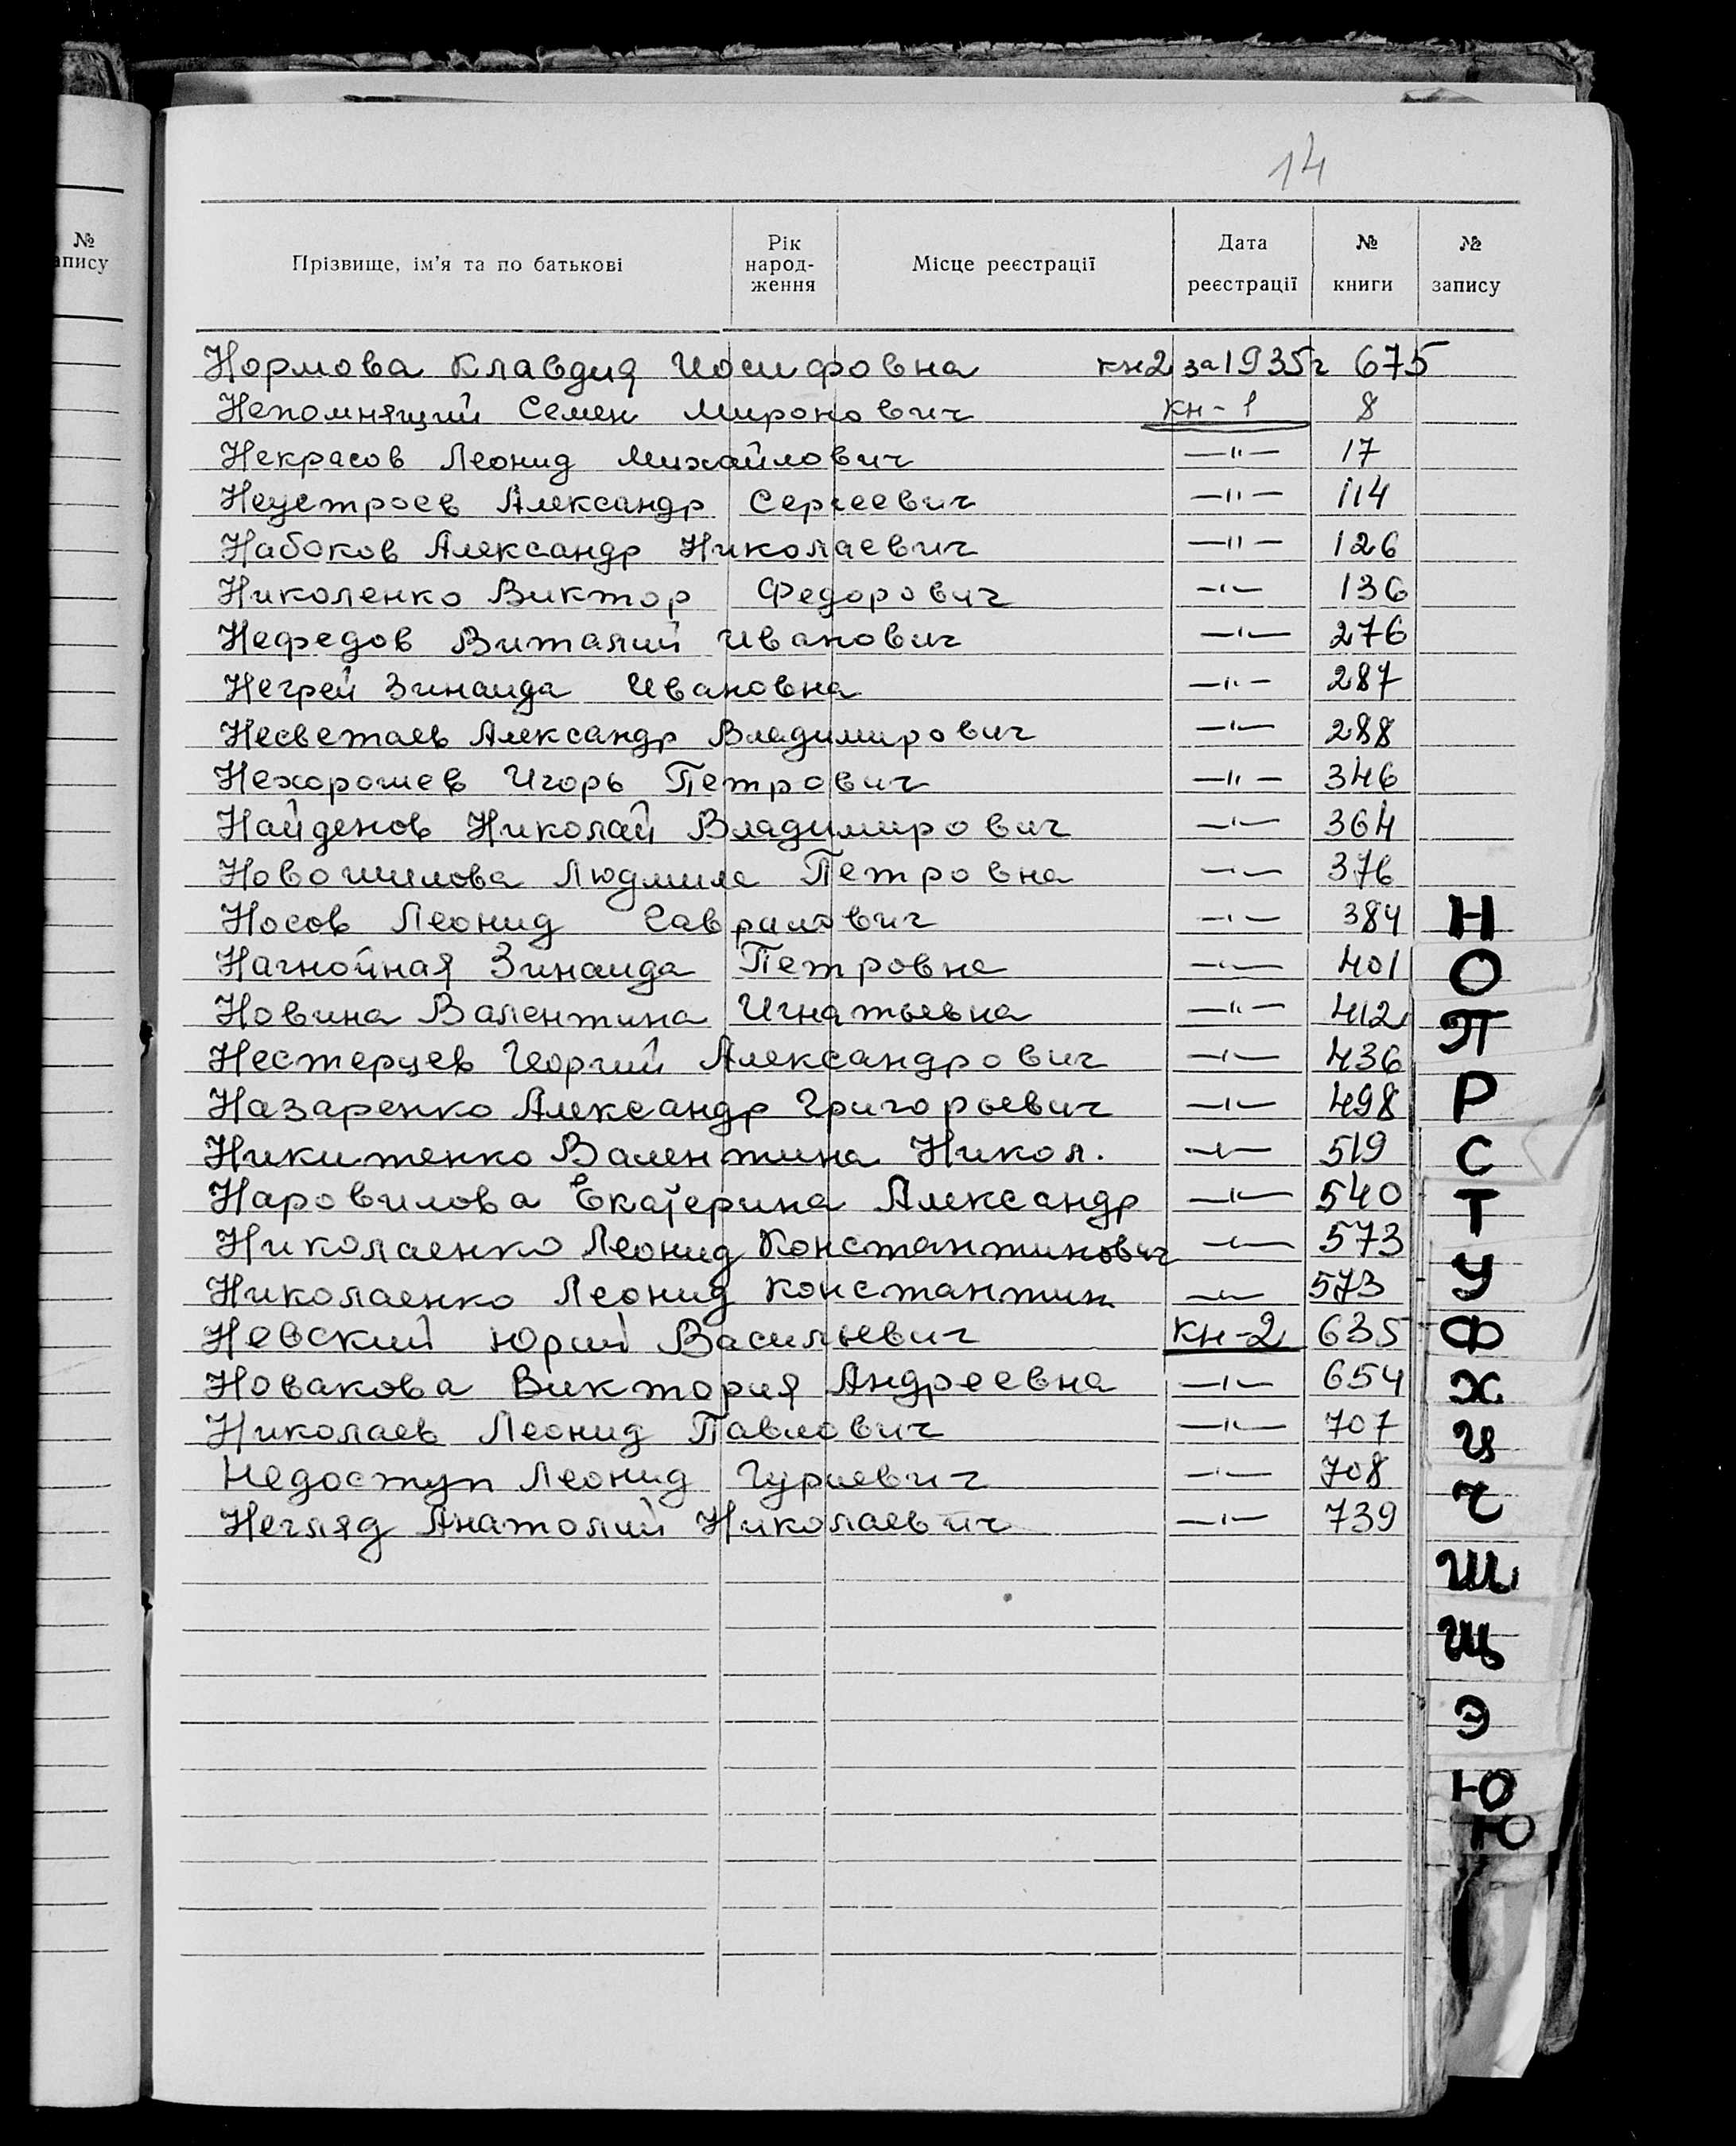 14
№
апису
Прізвище, ім'я та по батькові
Рік
народ-
ження
Місце реєстрації
Дата
реєстрації
№
книги
№
запису
Нормова Клавдия Иосифовна кн2 за 1935г 675
Непомнящий Семен Миронович кн-1 8
Некрасов Леонид Михайлович —"— 17
Неустроев Александр Сергеевич —"— 114
Набоков Александр Николаевич —"— 126
Николенко Виктор Федорович —"— 136
Нефедов Виталий Иванович —"— 276
Негрей Зинаида Ивановна —"— 287
Несветаев Александр Владимирович —"— 288
Нехорошев Игорь Петрович —"— 346
Найденов Николай Владимирович —"— 364
Новошилова Людмила Петровна —"— 376
Носов Леонид —"— 384
Нагнойная Зинаида Петровна —"— 401
Новина Валентина Игнатьевна —"— 412
Нестерцев Георгий Александрович —"— 436
Назаренко Александр Григорьевич —"— 498
Никитенко Валентина Никол. —"— 519
Наровилова Екатерина Александр —"— 540
Николаенко Леонид Константинович —"— 573
Николаенко Леонид Константин —"— 573
Невский Юрий Васильевич кн-2 635
Новакова Виктория Андреевна —"— 654
Николаев Леонид Павлович —"— 707
Недоступ Леонид Гуриевич —"— 708
Негляд Анатолий Николаевич —"— 739
Н
О
П
Р
С
Т
У
Ф
Х
Ц
Ч
Ш
Щ
Э
Ю
Ю